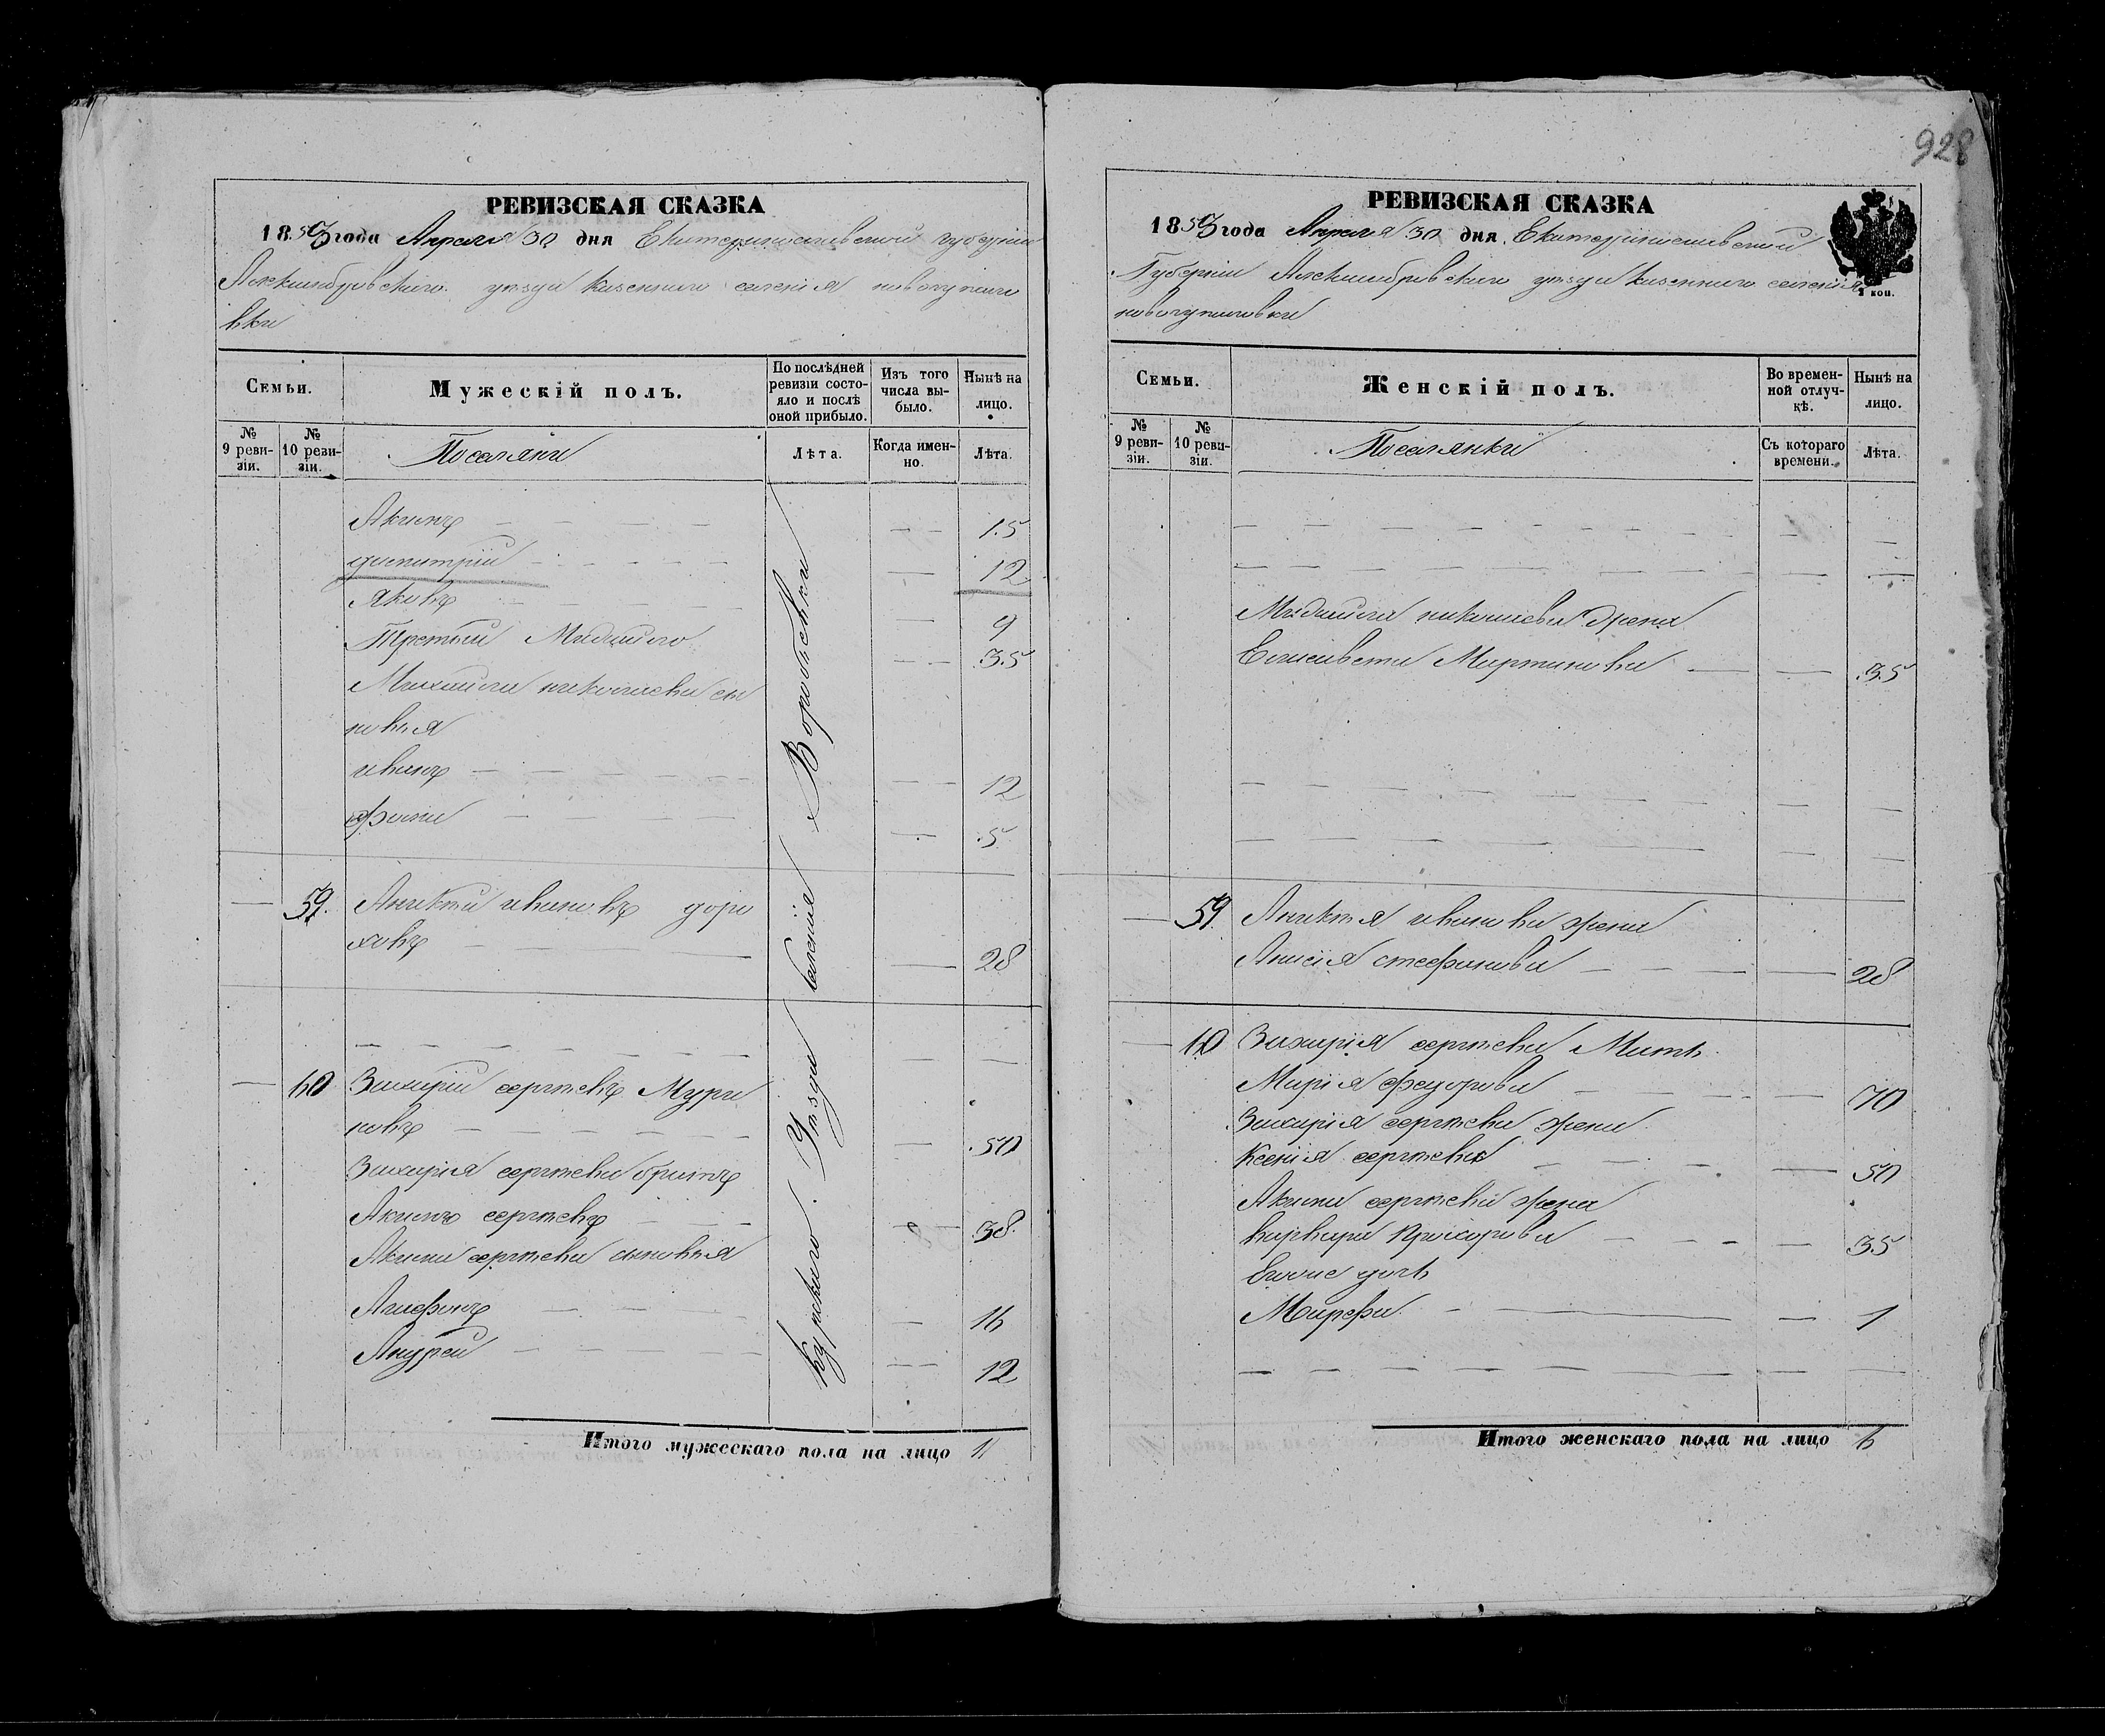 РЕВИЗСКАЯ СКАЗКА
года Апреля 30 дня Екатеринославской губернии
Александровского уезда казенного селения новогупало
вки
Семьи.
Мужескій полъ.
По послѣдней ревизіи состояло и послѣ оной прибыло.
Изъ того числа выбыло.
Нынѣ на лицо.
№ 9 ревизіи.
№ 10 ревизіи.
Поселяни
Лѣта.
Когда именно.
Лѣта.
Акимъ 15
дмитрій 12
Яковъ 9
Третьий 35
Михаила николаева сы
новья
иванъ 12
59. иванов доро
ховъ 28
60 Захарій сергеевъ Мура
новъ 50
Захарія сергеева братъ
Акимъ сергеевъ 38
Акима сергеева сыновья
Агафонъ 16
Андрей 12
Курскаго Уезда селения Воробьевки
Итого мужескаго пола на лицо 11
928
РЕВИЗСКАЯ СКАЗКА
года Апреля 30 дня Екатеринославской
Губернии Александровского уезда казенного селения
новогупаловки
2 коп.
Семьи.
Женскій полъ.
Во временной отлучкѣ.
Нынѣ на лицо.
№ 9 ревизіи.
№ 10 ревизіи.
Поселянки
Съ котораго времени.
Лѣта.
николаева жена
Елисавета Мартинова 35
59. иванова жена
Анисія стефанова 28
60 Захарія сергеева Мать
Марія федорова 70
Захарія сергеева жена
Ксенія сергеева 50
Акима сергеева жена
варвара прохорова 35
дочь
Марефа 1
Итого женскаго пола на лицо 6